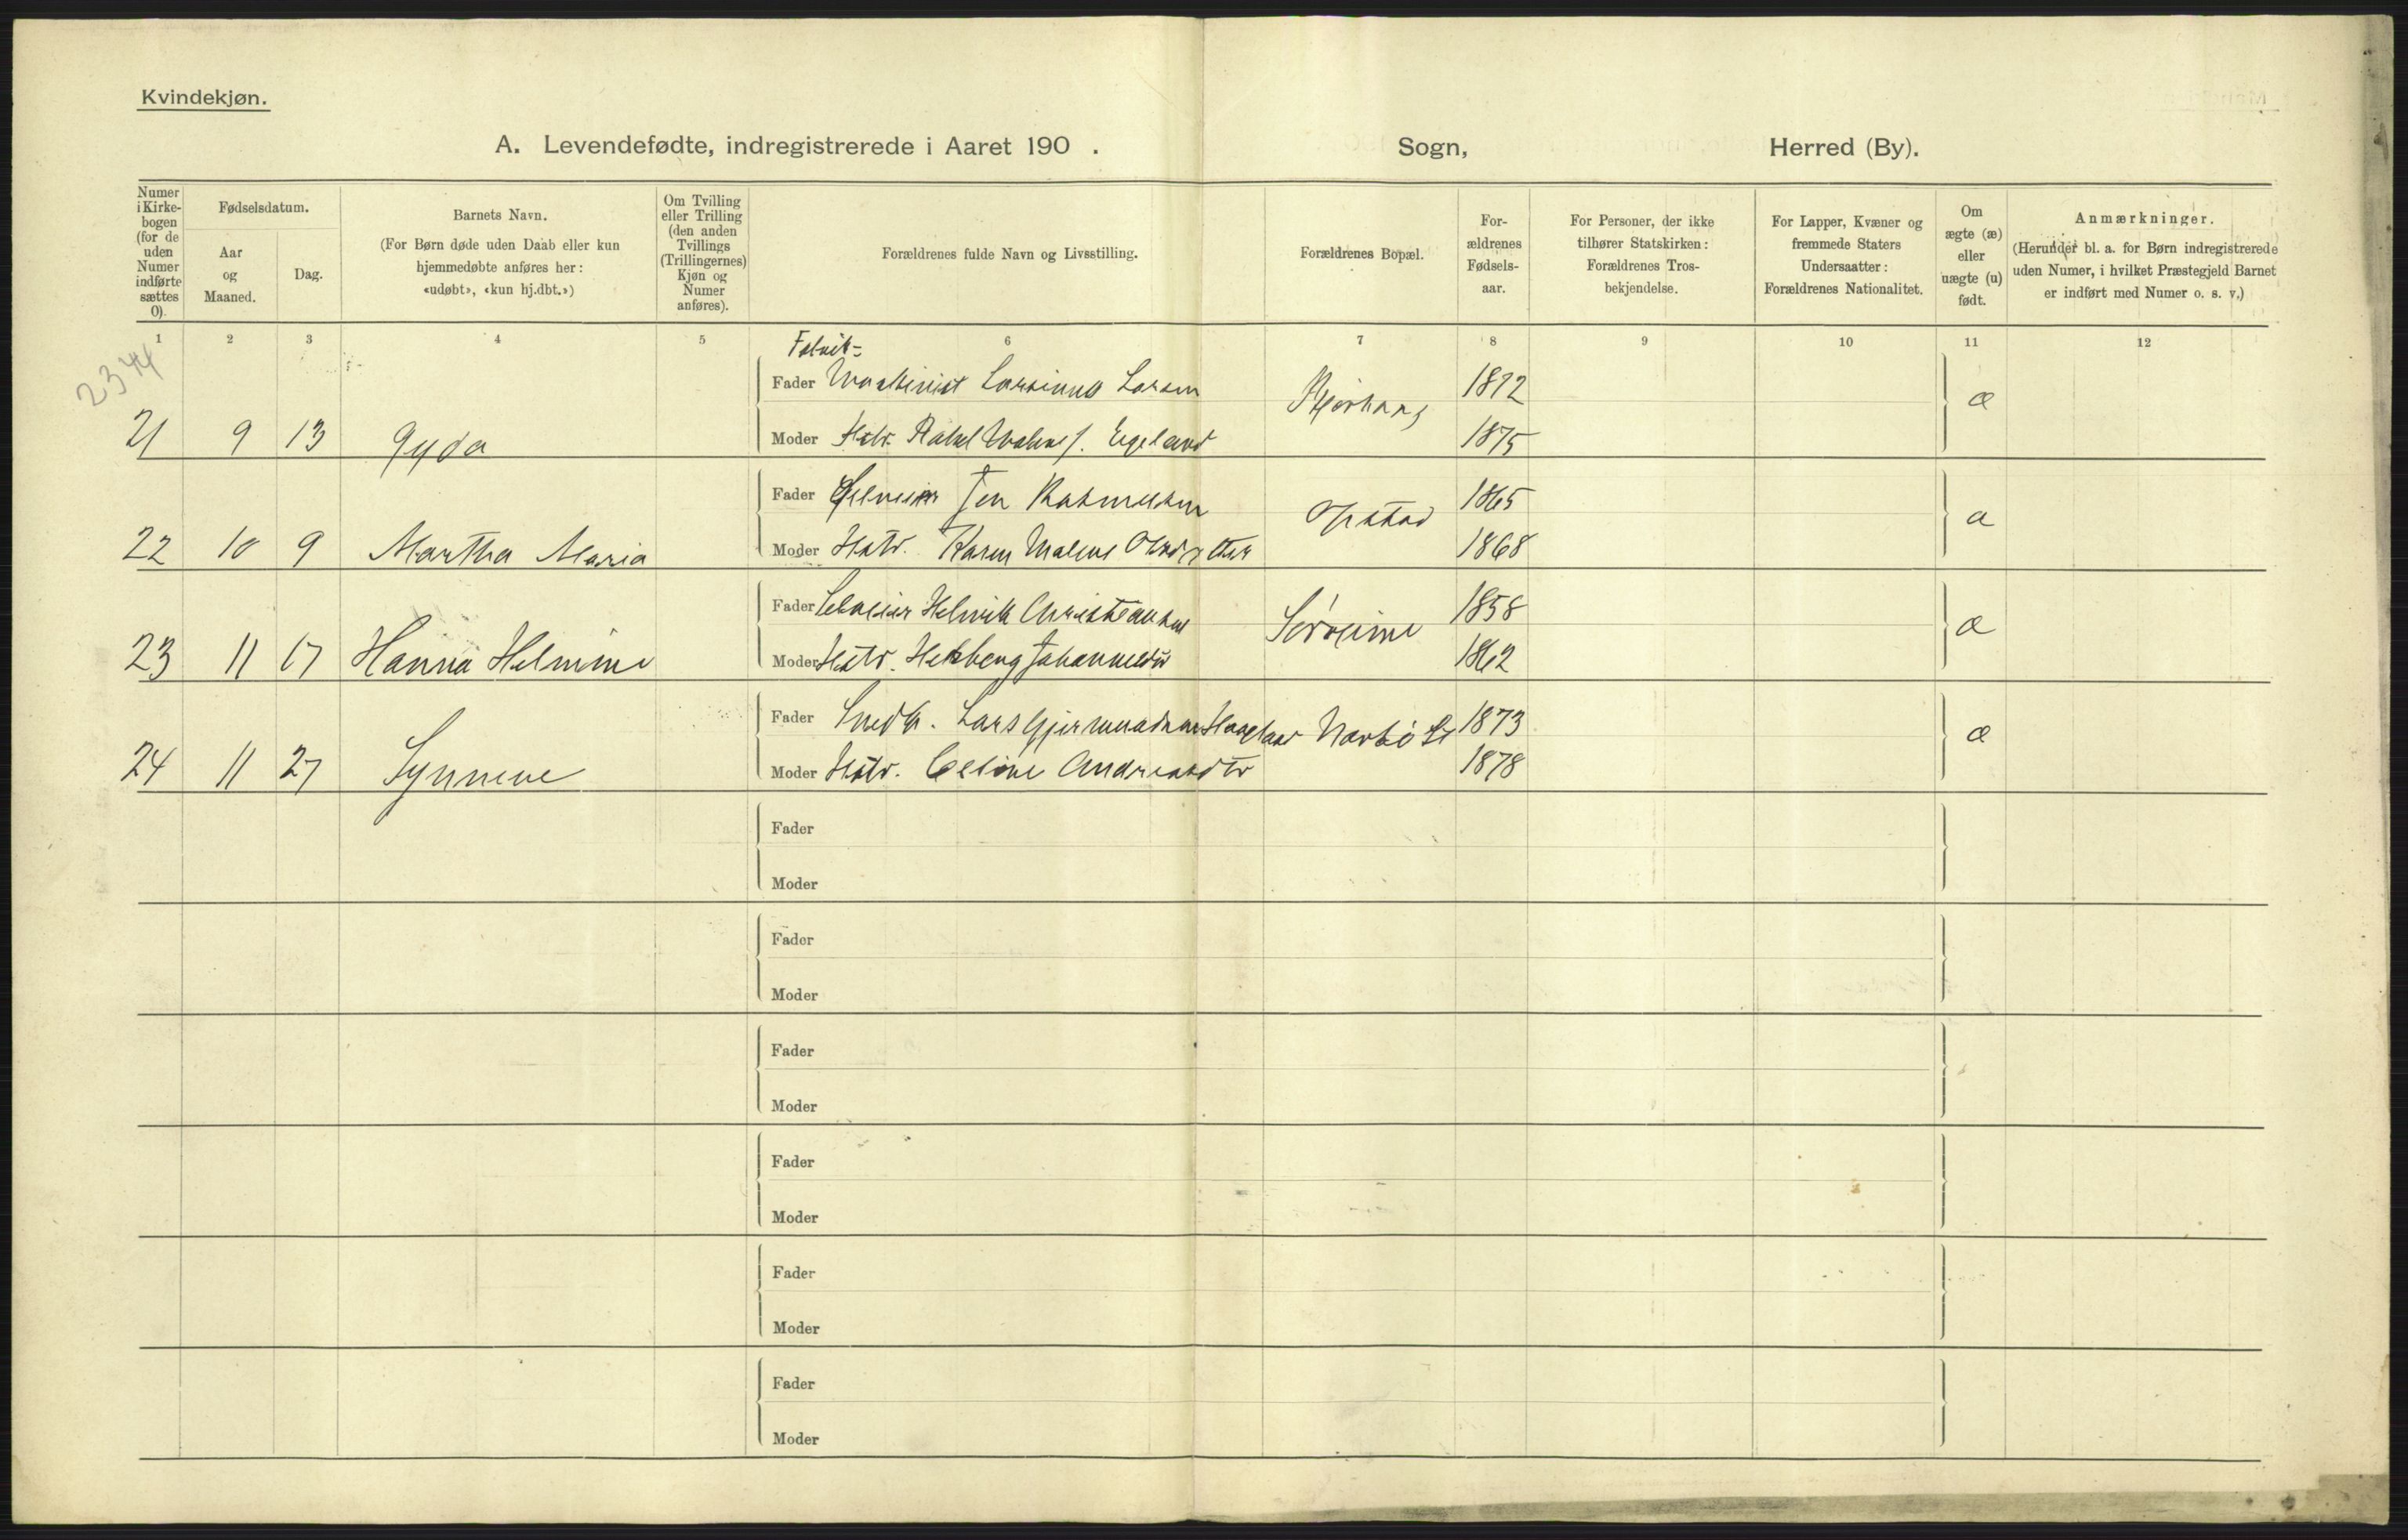 Kvindekjøn.
A. Levendefødte, indregistrerede i Aaret 190 . Sogn, Herred (By).
Numer i Kirkebogen (for de uden Numer indførte sættes 0).
Fødselsdatum.
Aar og Maaned.
Dag.
Barnets Navn.
(For Børn døde uden Daab eller kun hjemmedøbte anføres her: «udøbt», «kun hj.dbt.»)
Om Tvilling eller Trilling (den anden Tvillings (Trillingernes) Kjøn og Numer anføres).
Forældrenes fulde Navn og Livsstilling.
Forældrenes Bopæl.
Forældrenes Fødselsaar.
For Personer, der ikke tilhører Statskirken: Forældrenes Trosbekjendelse.
For Lapper, Kvæner og fremmede Staters Undersaatter: Forældrenes Nationalitet.
Om ægte (æ) eller uægte (u) født.
Anmærkninger.
(Herunder bl. a. for Børn indregistrerede uden Numer, i hvilket Præstegjeld Barnet er indført med Numer o. s. v.)
1 2 3 4 5 6 7 8 9 10 11 12
2344
Fabrik-
Fader Maskinist Larsinus Larsen 1872
21 9 13 Gyda
Moder Hstr. Rakel Malene f. Egeland 1875
æ
Fader Jon Rasmussen Opstad 1865
22 10 9 Martha Maria
Moder Hstr. Karen Malene 1868
æ
Fader Selveier Helmik Christiansen 1858
23 11 17 Hanna Helmine
Moder Hstr. Johannesdtr 1862
æ
Fader Snedk. Lars Nærbö St 1873
24 11 27 Synneve
Moder Hstr. Celine Andreasdtr 1878
æ
Fader
Moder
Fader
Moder
Fader
Moder
Fader
Moder
Fader
Moder
Fader
Moder